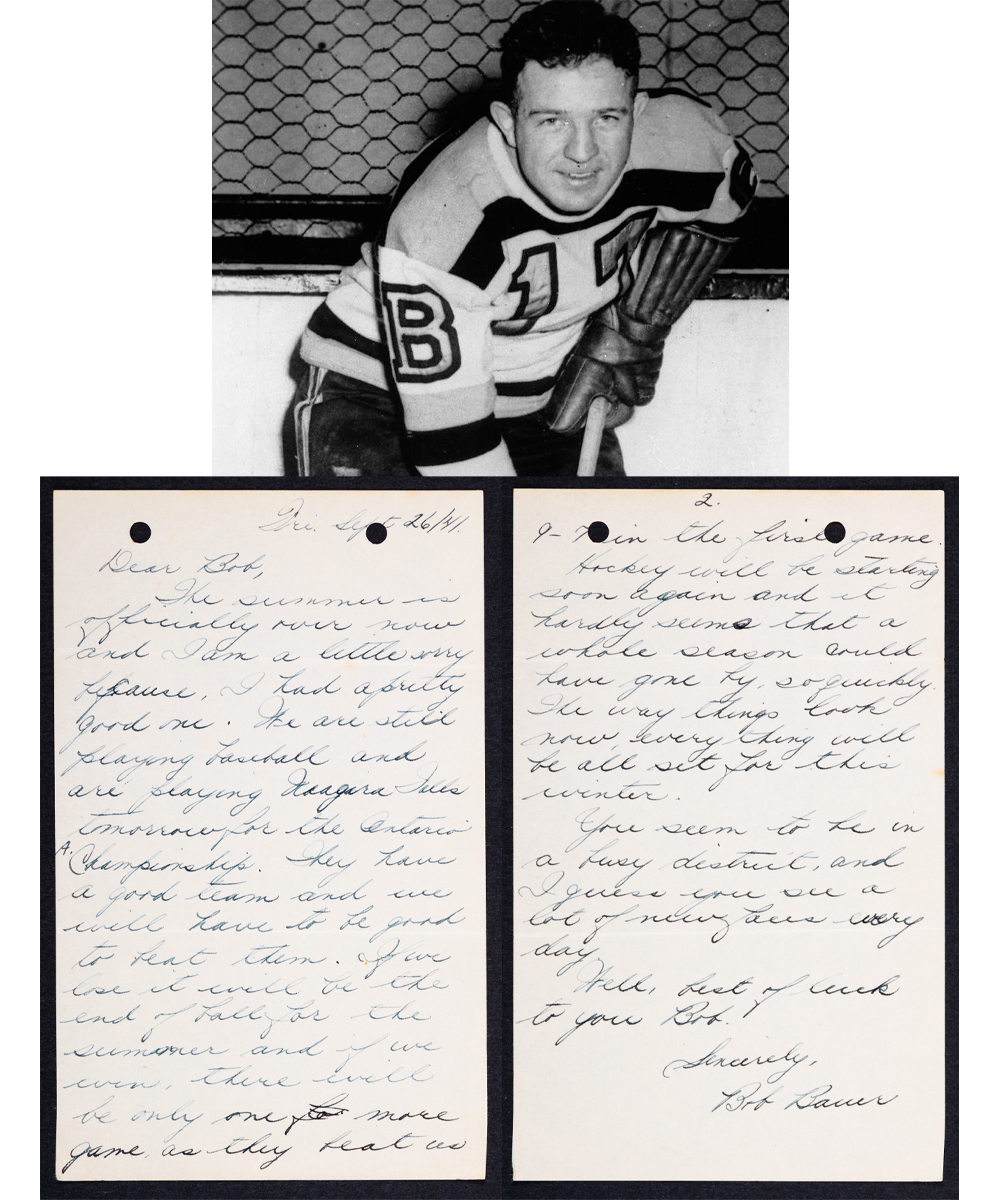 B 17
Fri. Sept 26/41.
Dear Bob,
The summer is
officially over now
and I am a little sorry
because, I had a pretty
good one. We are still
playing baseball and
are playing Niagara Falls
tomorrow for the Ontario
A.
Championship. They have
a good team and we
will have to be good
to beat them. If we
lose it will be the
end of ball for the
summer and if we
win, there will
be only one more
game, as they beat us
2.
9-7 in the first game.
Hockey will be starting
soon again and it
hardly seems that a
whole season could
have gone by, so quickly.
The way things look
now, every thing will
be all set for this
winter.
You seem to be in
a busy district, and
I guess you see a
lot of new faces every
day.
Well, best of luck
to you Bob.
Sincerely,
Bob Bauer